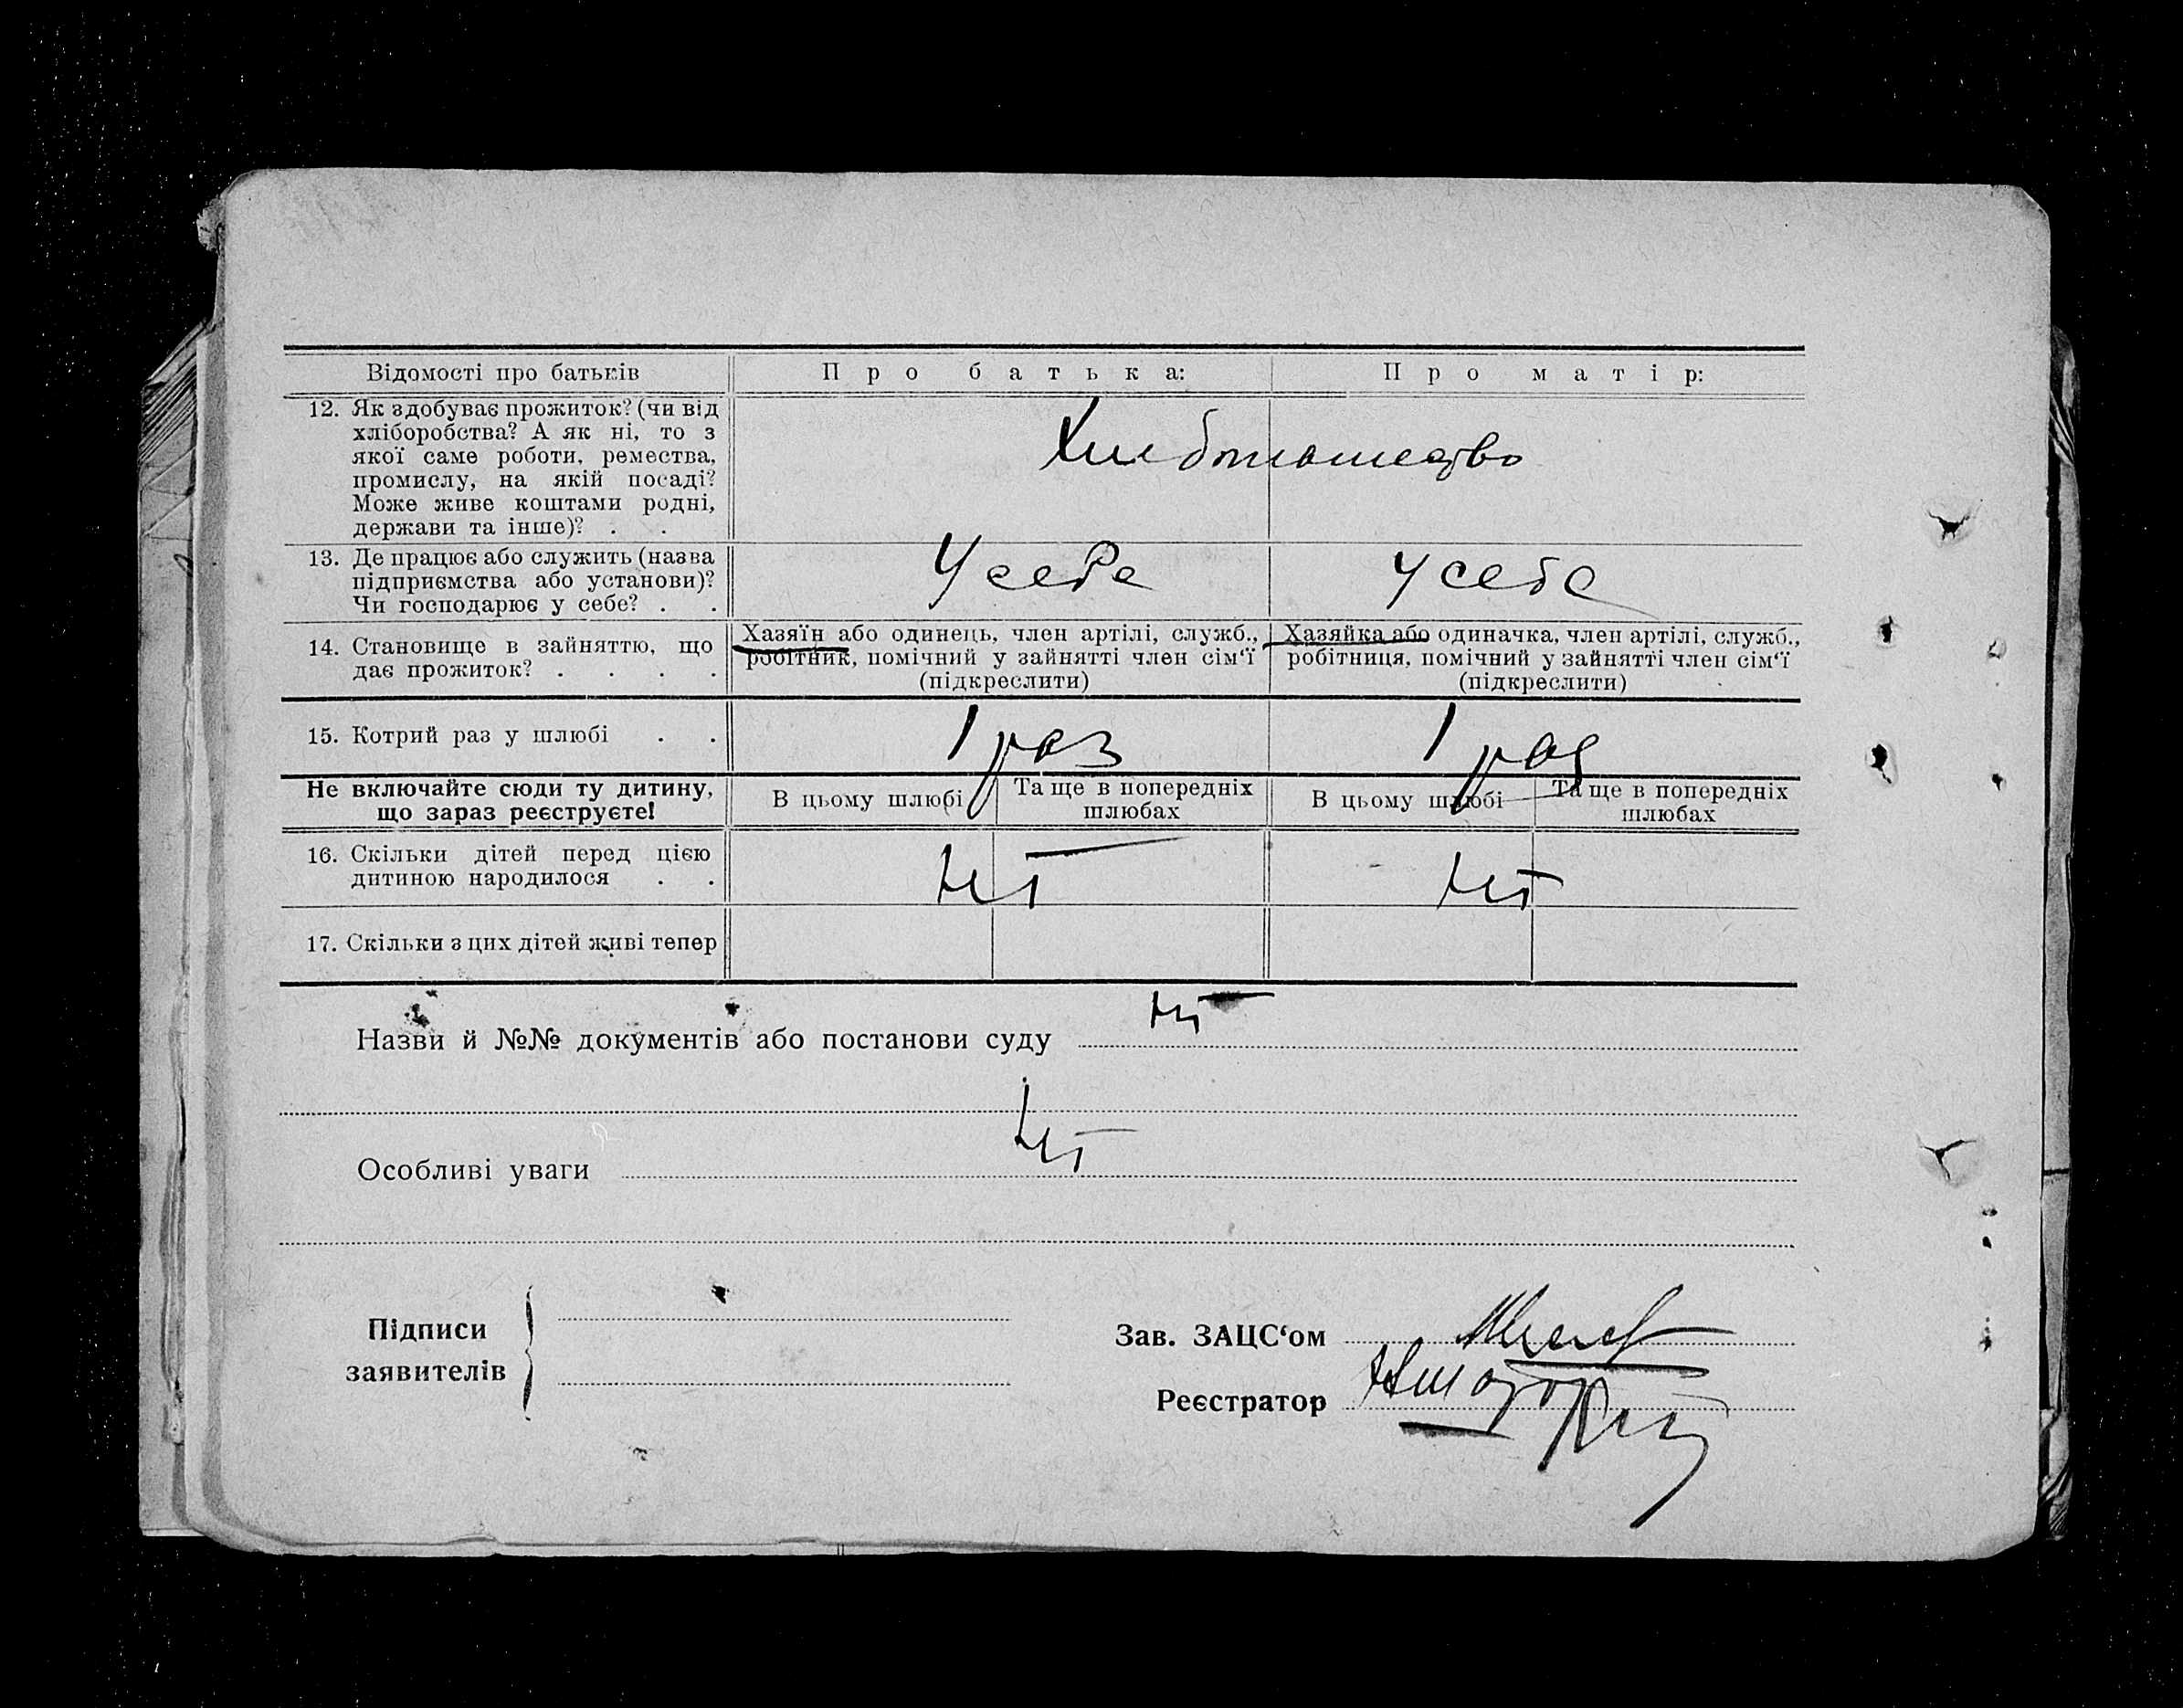 Відомості про батьків
Про батька:
Про матір:
12. Як здобуває прожиток? (чи від
хліборобства? А як ні, то з
якої саме роботи, ремества,
промислу, на якій посаді?
Може живе коштами родні,
держави та інше)? . .
Хлебопашество
13. Де працює або служить (назва
підприємства або установи)?
Чи господарює у себе? . .
У себе
У себе
14. Становище в зайняттю, що
дає прожиток? . . . .
Хазяїн або одинець, член артілі, служб.,
робітник, помічний у зайнятті член сім‘ї
(підкреслити)
Хазяйка або одиначка, член артілі, служб.,
робітниця, помічний у зайнятті член сім‘ї
(підкреслити)
15. Котрий раз у шлюбі . .
1 раз
1 раз
Не включайте сюди ту дитину,
що зараз реєструєте!
В цьому шлюбі
Та ще в попередніх
шлюбах
В цьому шлюбі
Та ще в попередніх
шлюбах
16. Скільки дітей перед цією
дитиною народилося . .
Нет
Нет
17. Скільки з цих дітей живі тепер
Назви й №№ документів або постанови суду
Нет
Особливі уваги
Нет
Підписи
заявителів
Зав. ЗАЦС‘ом
Реєстратор